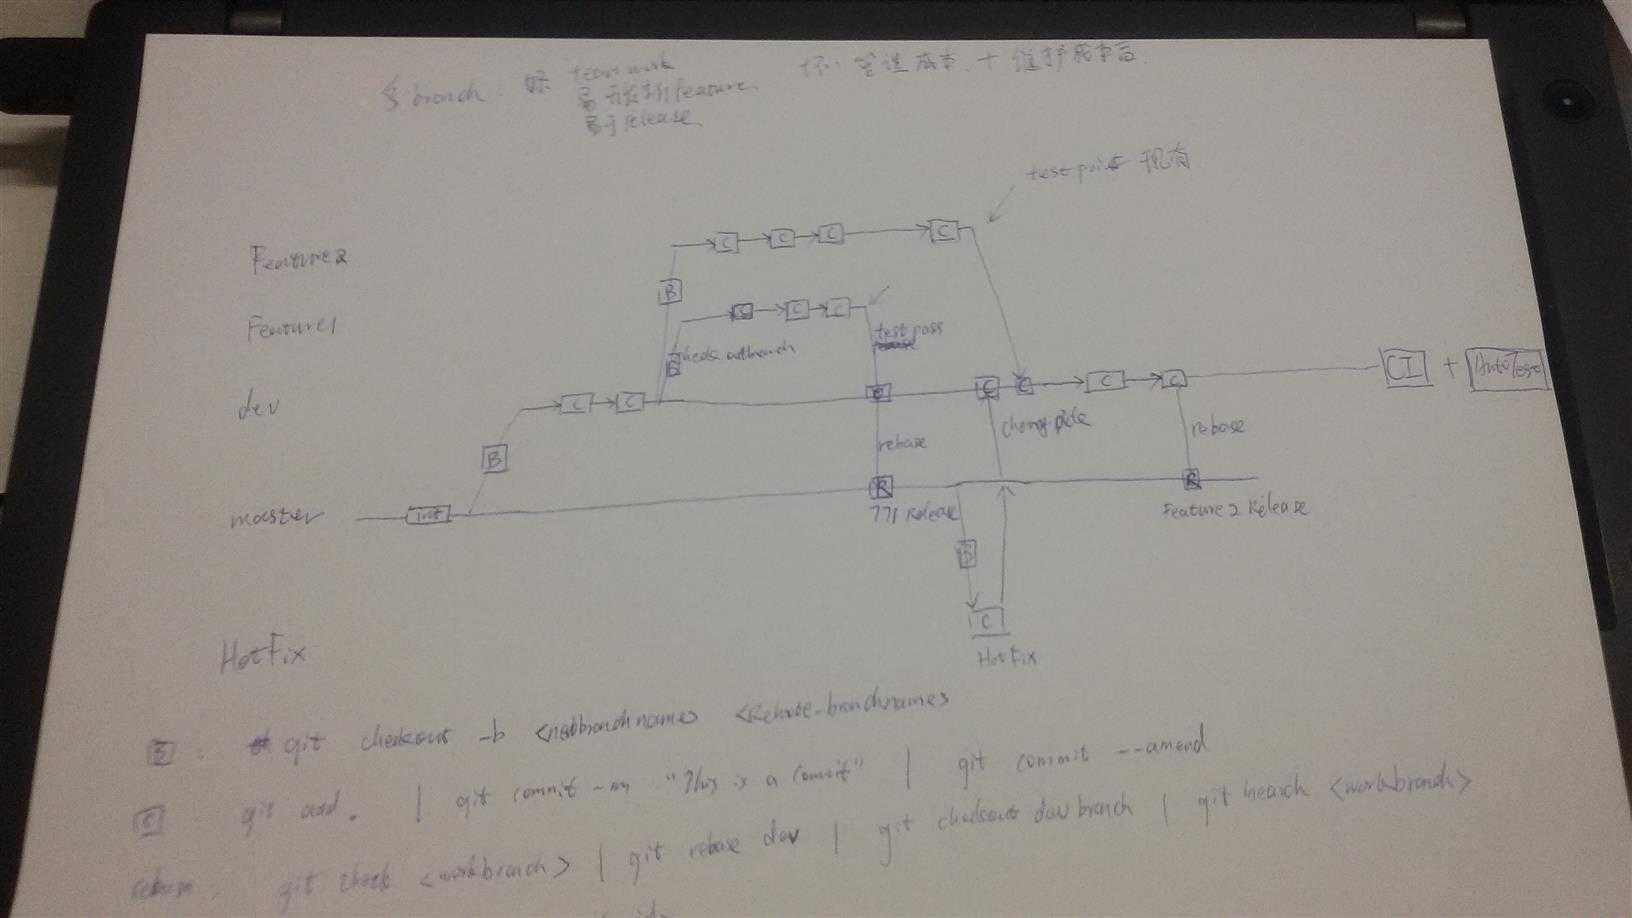 多 branch 好 team work 坏: 管道成本 + 维护成本高
易 开发新 feature
易于 release
test point 现有
Feature2 C C C C
B
Feature1 C C C
test pass
check out branch
B
dev C C C C C C C CI + AutoTest
B rebase cherry pick rebase
master init R R
771 Release Feature 2 Release
B
C
HotFix HotFix
B : git checkout -b <newbranchname> <Remote-branchname>
C git add . | git commit -m "This is a commit" | git commit --amend
git check <workbranch> | git rebase dev | git checkout dev branch | git <workbranch>